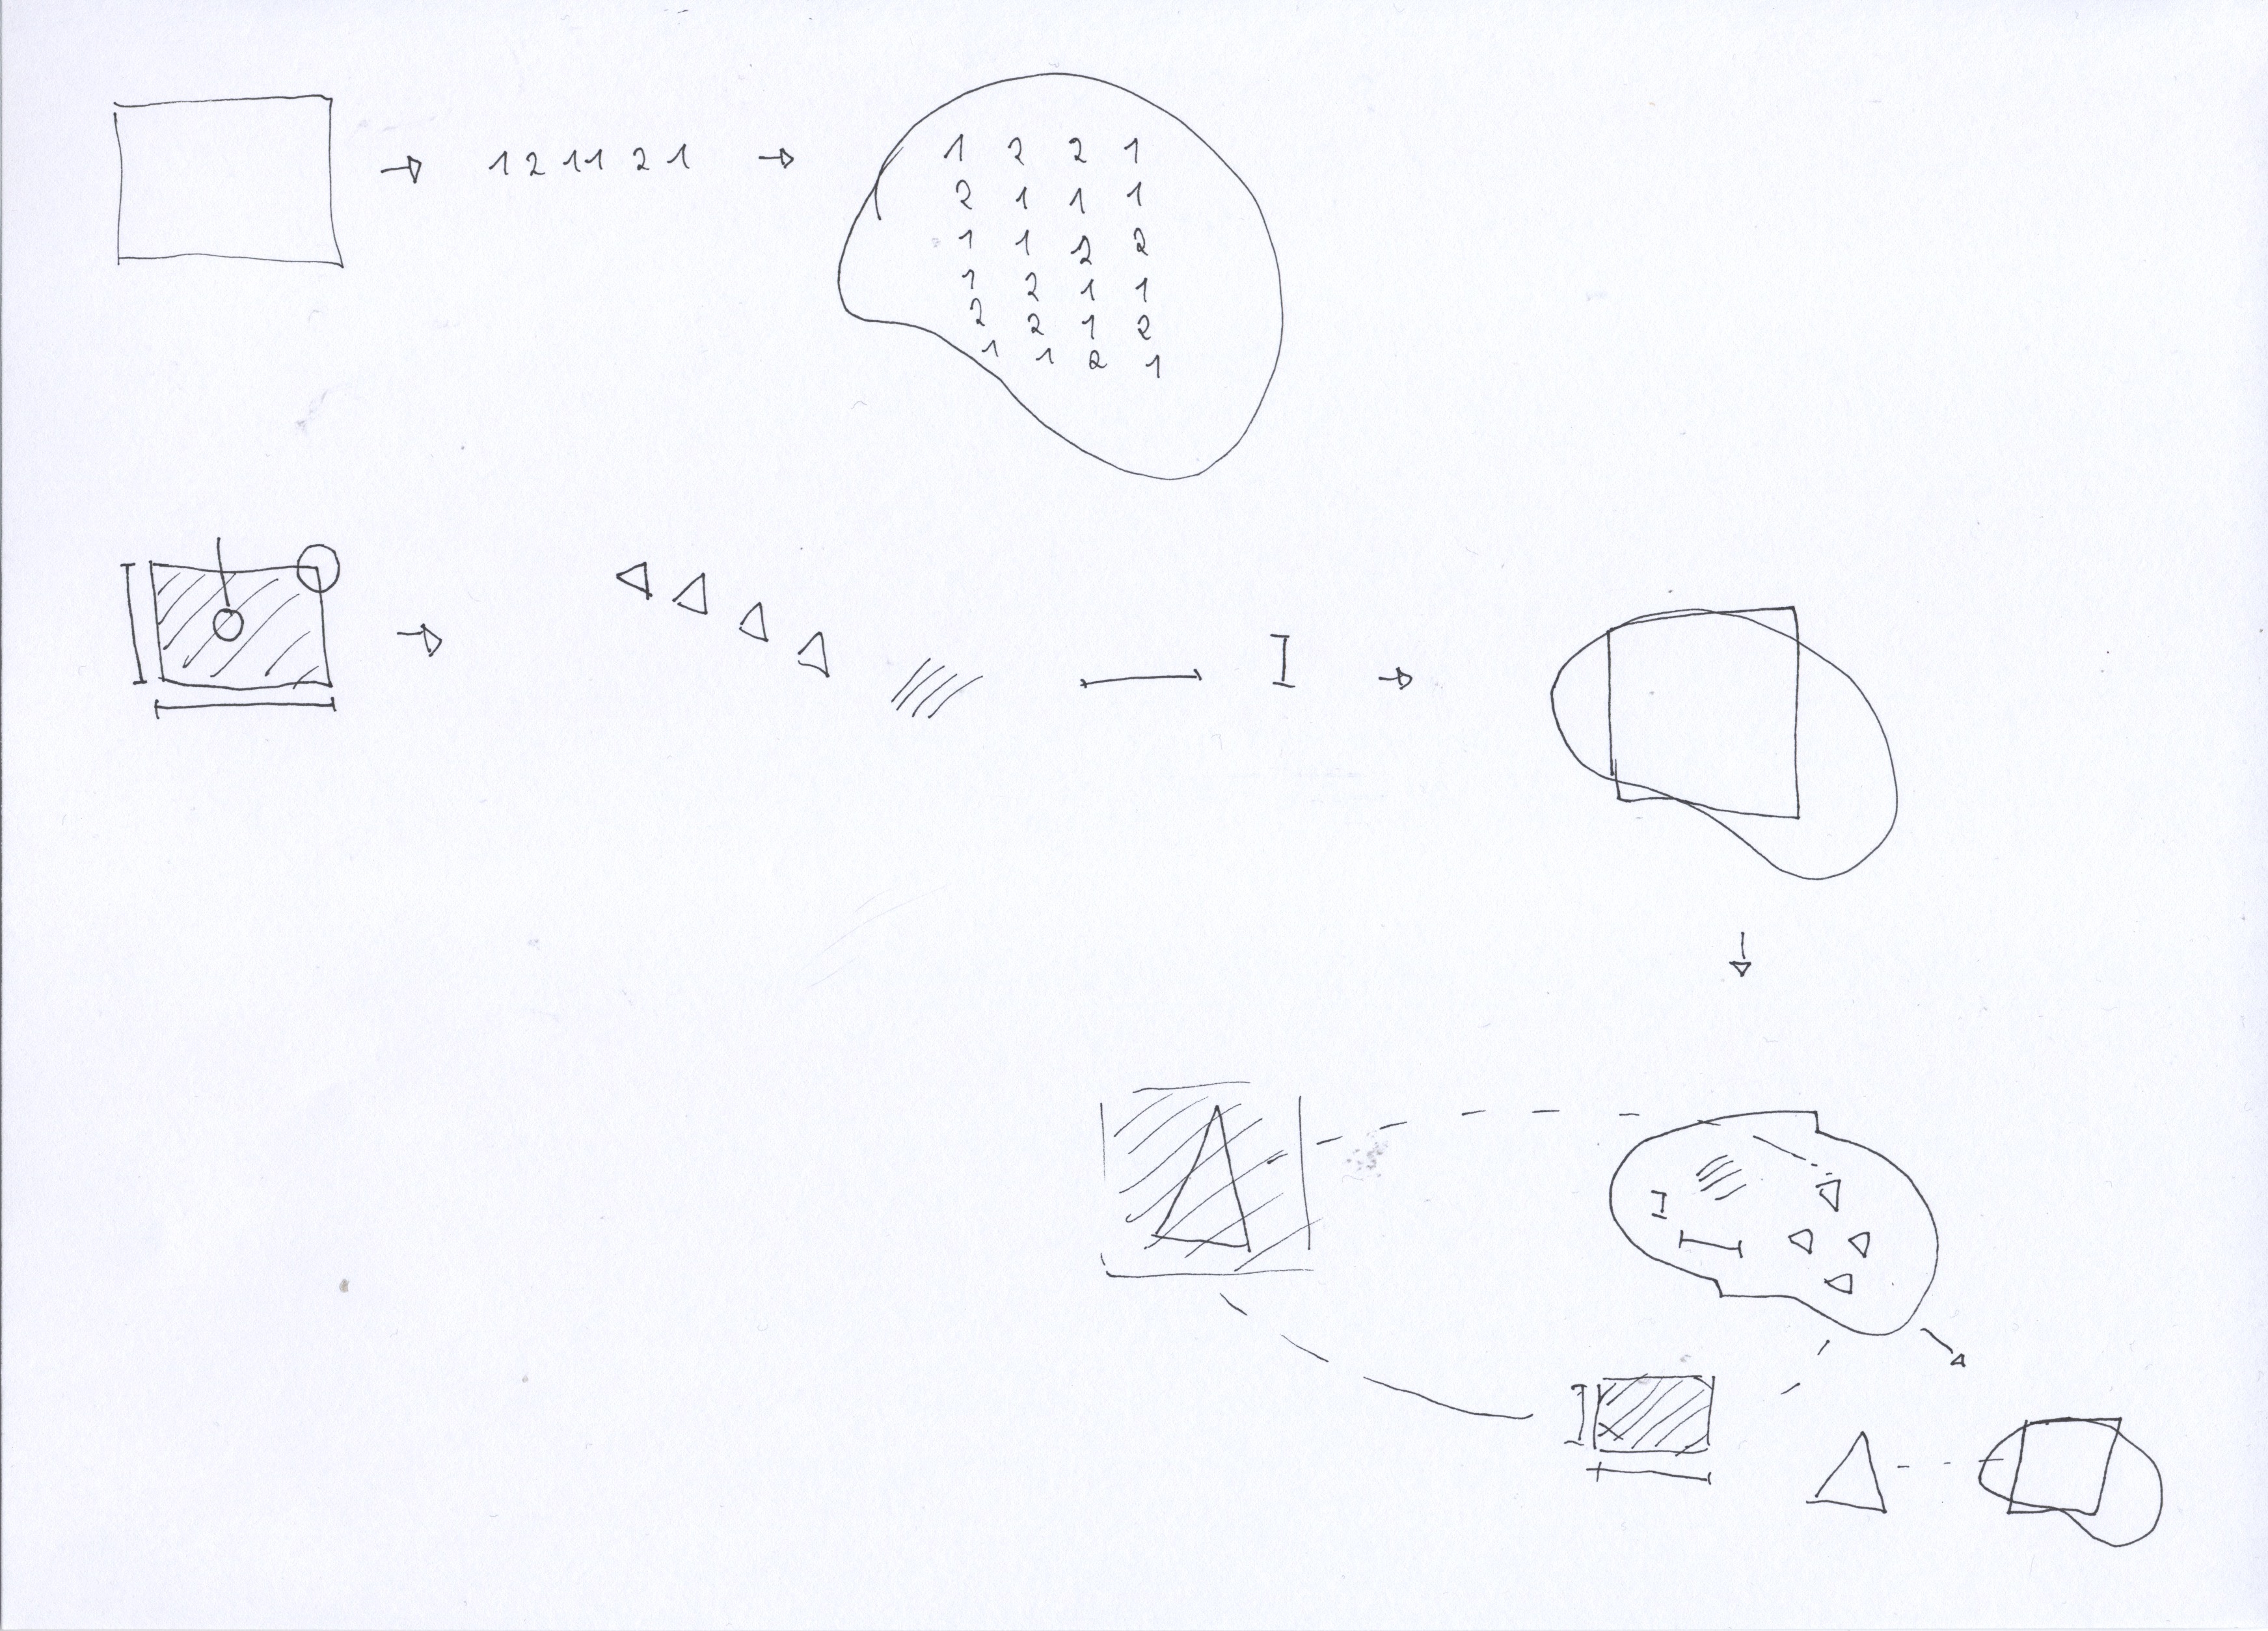 1 2 1 1 2 1
1 2 2 1
2 1 1 1
1 1 2 2
1 2 1 1
2 2 1 2
1 1 2 1